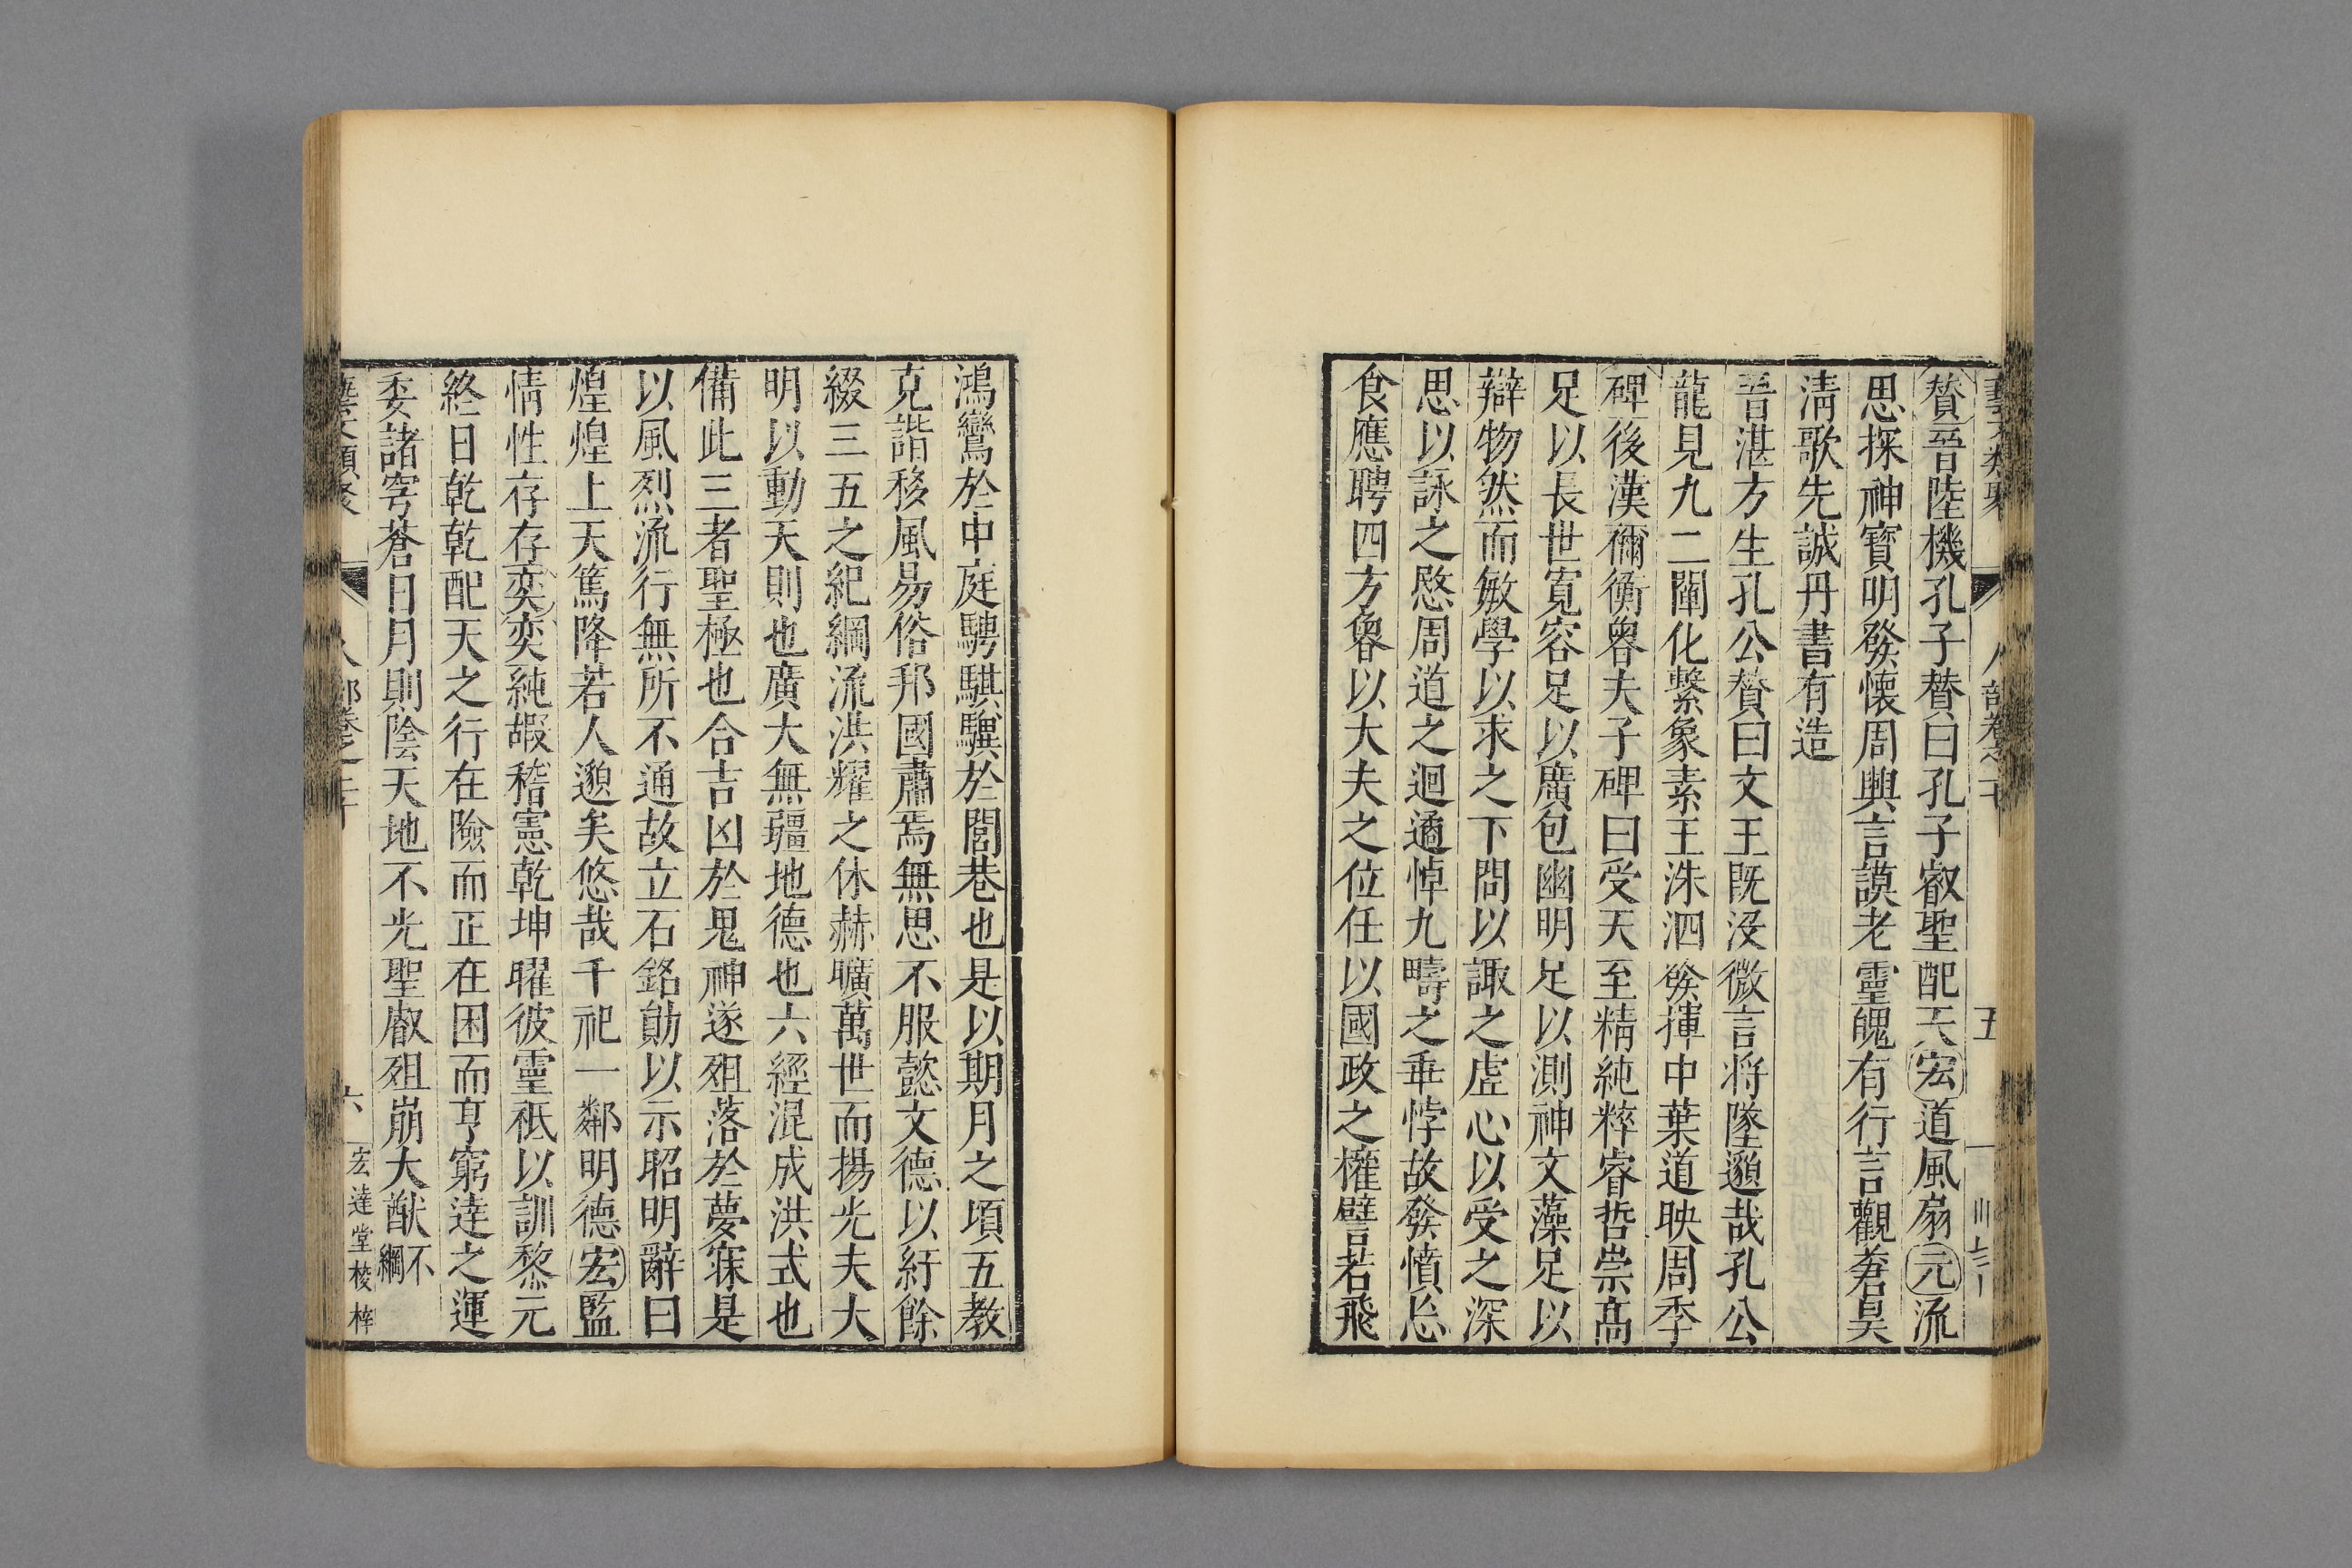 贊晉陸機孔子贊曰孔子叡聖配天宏道風扇元流
思探神寶明發懷周興言謨老靈魄有行言觀蒼昊
清歌先誡丹書有造
晉湛方生孔公贊曰文王既沒微言將墜邈哉孔公
龍見九二闡化繫象素王洙泗發揮中葉道映周季
碑後漢禰衡魯夫子碑曰受天至精純粹睿哲崇高
足以長世寬容足以廣包幽明足以測神文藻足以
辯物然而敏學以求之下問以諏之虛心以受之深
思以詠之愍周道之迴遹悼九疇之乖悖故發憤忘
食應聘四方魯以大夫之位任以國政之權譬若飛
鴻鸞於中庭騁騏驥於閭巷也是以期月之頃五教
克諧移風易俗邦國肅焉無思不服懿文德以紆餘
綴三五之紀綱流洪耀之休赫曠萬世而揚光夫大
明以動天則也廣大無疆地德也六經混成洪式也
備此三者聖極也合吉凶於鬼神遂殂落於夢寐是
以風烈流行無所不通故立石銘勛以示昭明辭曰
煌煌上天篤降若人邈矣悠哉千祀一鄰明德宏監
情性存存奕奕純嘏稽憲乾坤曜彼靈祗以訓黎元
終日乾乾配天之行在險而正在困而亨窮達之運
委諸穹蒼日月則陰天地不光聖叡殂崩大猷不綱
六 宏達堂校梓